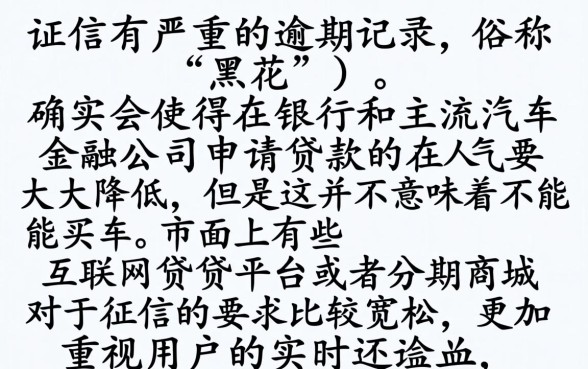 证信有严重的逾期记录，俗称
“黑花”）。
确实会使得在银行和主流汽车
金融公司申请贷款的在人气要
大大降低，但是这并不意味着不能
能买车。市面上有些
互联网贷贷平台或者分期商城
对于征信的要求比较宽松，更加
重视用户的实时还谥血，